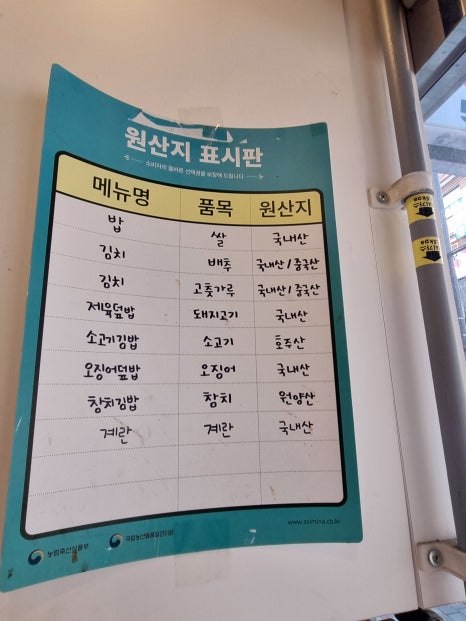 원산지 표시판
소비자의 올바른 선택권을 보장해 드립니다
메뉴명 품목 원산지
밥 쌀 국내산
김치 배추 국내산/중국산
김치 고춧가루 국내산/중국산
제육덮밥 돼지고기 국내산
소고기김밥 소고기 호주산
오징어덮밥 오징어 국내산
참치김밥 참치 원양산
계란 계란 국내산
www.asimina.co.kr
농림축산식품부 국립농산물품질관리원